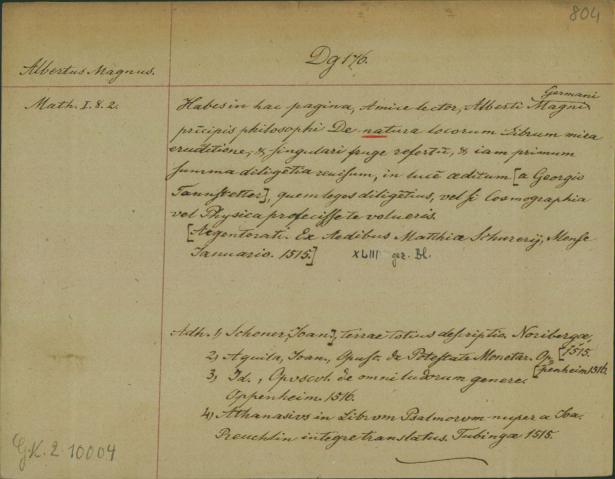 804
Dg 176.
Albertus Magnus.
Math. I. 8. 2.
Germani
Habes in hac pagina, Amice lector, Alberti Magni
principis philosophi De natura locorum Librum mira
eruditione, &, singulari fruge refertū, & iam primum
summa diligētia reuisum, in lucē aeditum [a Georgio
Tannstetter], quem leges diligētius, vel si Cosmographia
vel Physica profecisse te volueris.
[Argentorati. Ex Aedibus Matthiæ Schurerij, Mense
Ianuario. 1515.] XLIII gez. Bl.
Adh. 1, Schoner, [Joan], terrae totius descriptio. Noribergæ,
[1515.
2, Aquila, Joan., Opusc. de Potestate Monetar. Op
[penheim 1516.
3, Id., Opuscul. de omni ludorum genere.
Oppenheim. 1516.
4, Athanasivs in Librvm Psalmorvm nuper a Joa.
Reuchlin integre translatus. Tubingæ 1515.
G.K. 2. 10004